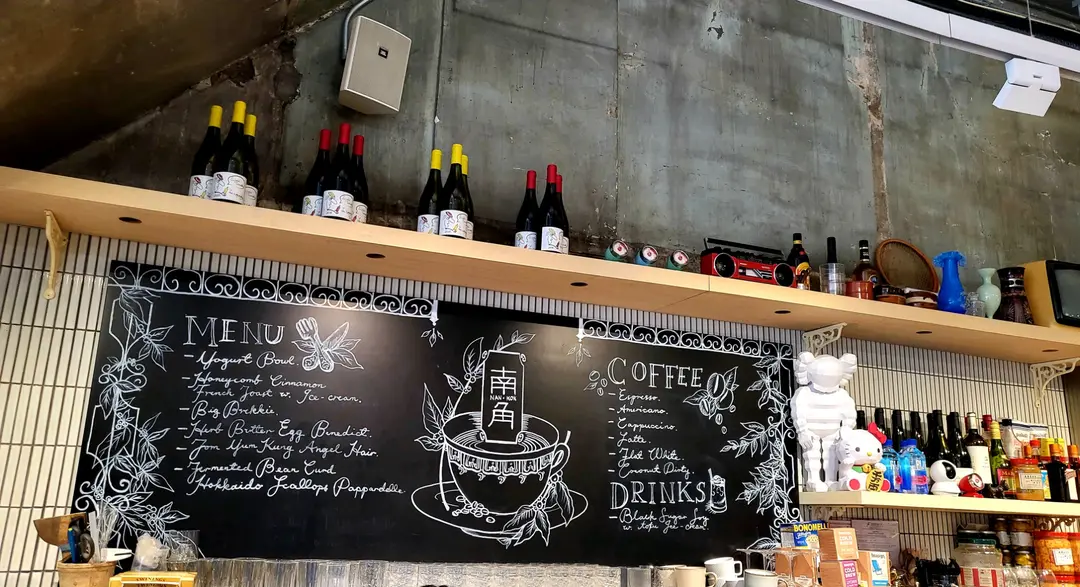 MENU
- Yogurt Bowl.
- Honeycomb Cinnamon
French Toast w. Ice-cream.
- Big Brekkie.
- Herb Butter Egg Benedict.
- Tom Yum Kung Angel Hair.
- Fermented Bean Curd
Hokkaido Scallops Pappardelle.
南
NAN-KOK
角
COFFEE
- Espresso.
- Americano.
- Cappuccino.
- Latte.
- Flat White.
- Coconut Dirty.
DRINKS
- Black Sugar Soy
w. Tofu Ice-Cream
BONOMELLI
COLD BREW